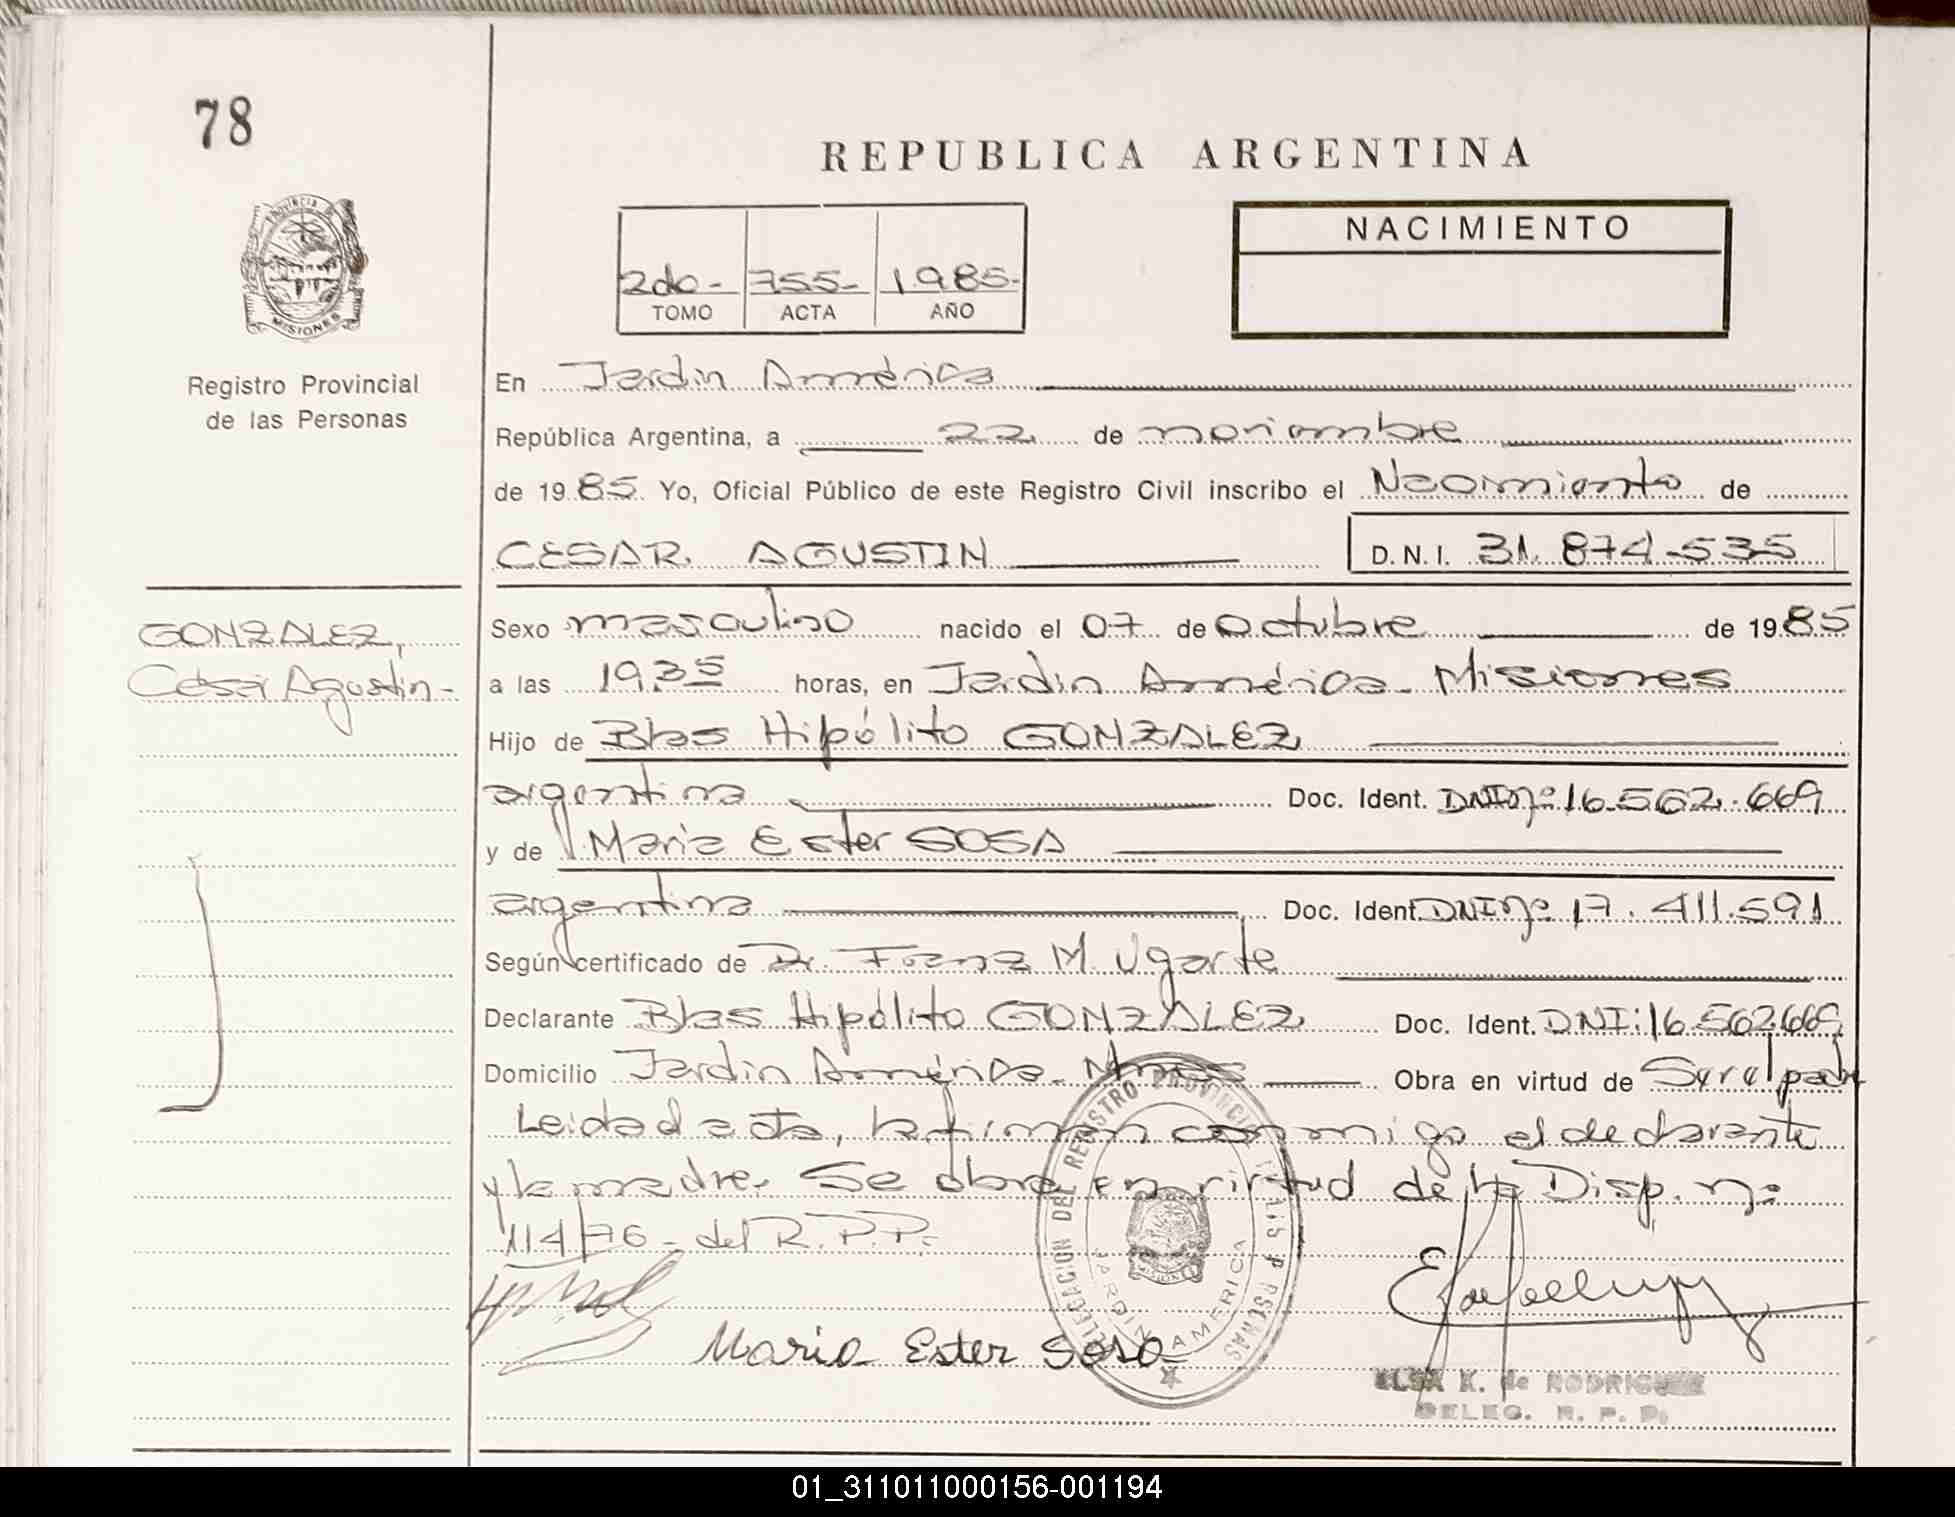 78
REPUBLICA ARGENTINA
PROVINCIA DE
MISIONES
Registro Provincial
de las Personas
2do - 755 - 1985 -
TOMO ACTA AÑO
NACIMIENTO
En Jardin América
República Argentina, a 22 de noviembre
de 1985 Yo, Oficial Público de este Registro Civil inscribo el Nacimiento de
CESAR AGUSTIN D.N.I. 31.874-535
GONZALEZ,
César Agustin -
Sexo masculino nacido el 07 de Octubre de 1985
a las 19,35 horas, en Jardin América - Misiones
Hijo de Blas Hipólito GONZALEZ
argentina Doc. Ident. DNI nº 16.562.669
y de Maria Ester SOSA
argentina Doc. Ident. DNI nº 17.411.591
Según certificado de Dr. Franz M. Ugarte
Declarante Blas Hipólito GONZALEZ Doc. Ident. DNI: 16.562.669
Domicilio Jardin América - Mnes Obra en virtud de Ser el padre
Leida el acta, la firman conmigo el declarante
y la madre. Se obra en virtud de la Disp. nº
114/76 - del R.P.P.
DELEGACION DEL REGISTRO PROVINCIAL
JARDIN AMERICA
MISIONES
Maria Ester Sosa
ELSA K. de RODRIGUEZ
DELEG. R. P. P.
01_311011000156-001194